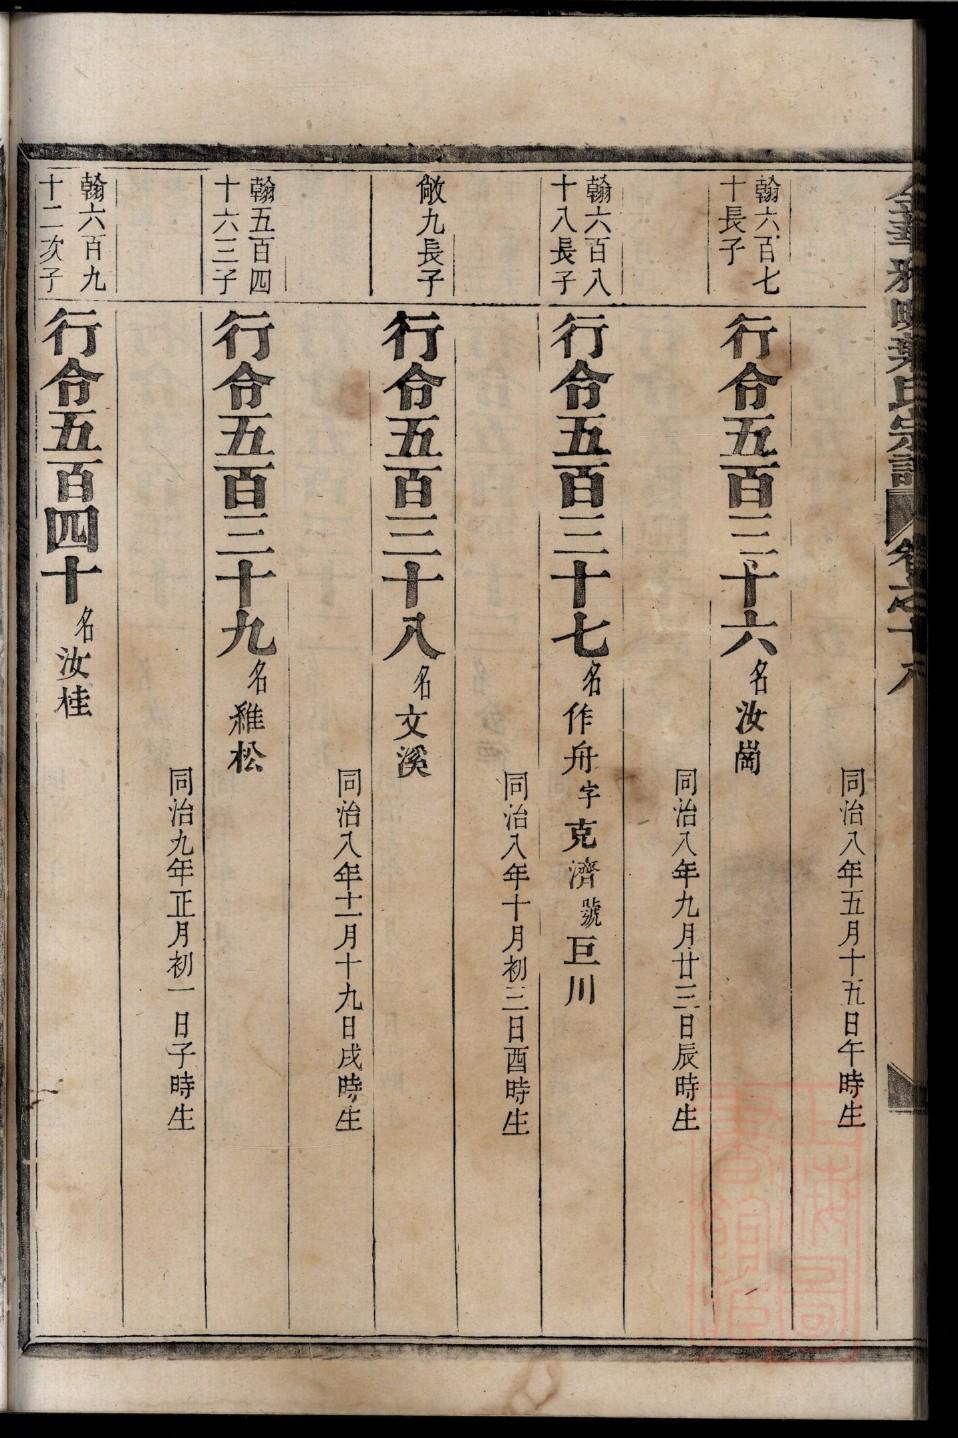 同治八年五月十五日午時生
翰六百七
十長子
行令五百三十六名汝崗
同治八年九月廿三日辰時生
翰六百八
十八長子
行令五百三十七名作舟字克濟號巨川
同治八年十月初三日酉時生
敵九長子
行令五百三十八名文溪
同治八年十一月十九日戌時生
翰五百四
十六三子
行令五百三十九名維松
同治九年正月初一日子時生
翰六百九
十二次子
行令五百四十名汝桂
氏宗譜
卷之十八
上海圖
書館藏